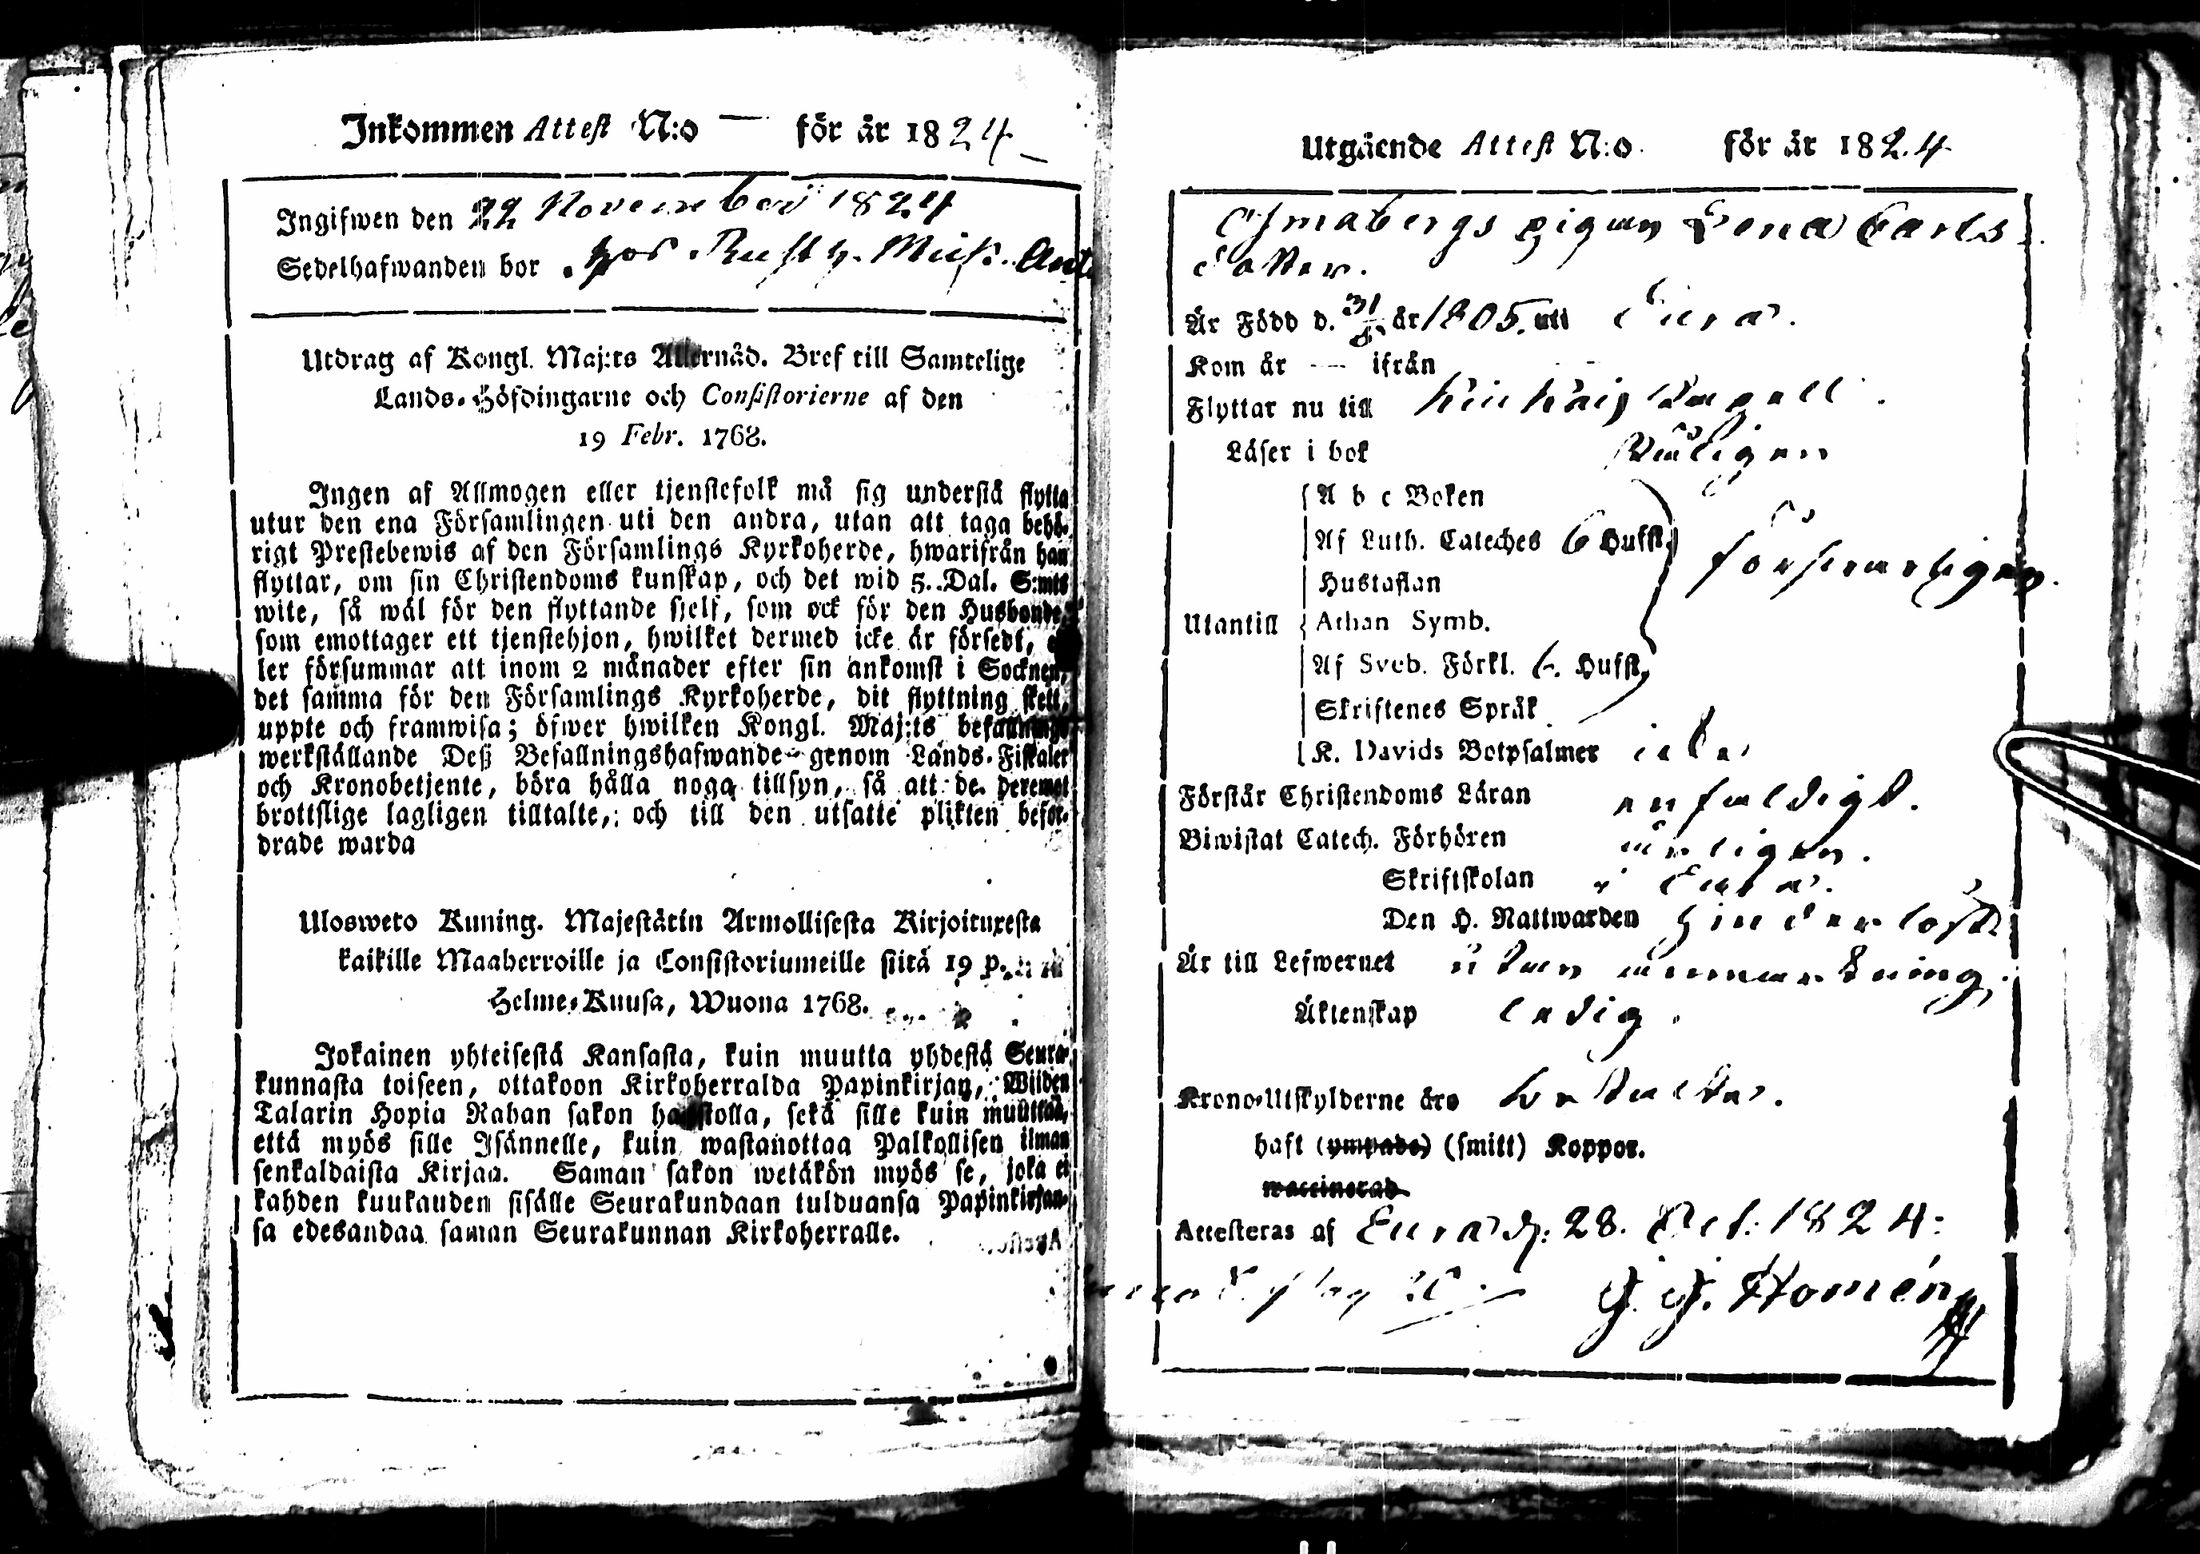 Inkommen Attest N:o — för år 1824
Ingifwen den 22 November 1824
Sedelhafwanden bor hos Rusth. Mich. Ant
Utdrag af Kongl. Maj:ts Allernåd. Bref till Samtelige
Lands-Höfdingarne och Consistorierne af den
19 Febr. 1768.
Ingen af Allmogen eller tjenstefolk må sig understå flytta
utur den ena Församlingen uti den andra, utan att taga behö-
rigt Prestebewis af den Församlings Kyrkoherde, hwarifrån han
flyttar, om sin Christendoms kunskap, och det wid 5. Dal. S:mts
wite, så wäl för den flyttande sjelf, som ock för den Husbonde,
som emottager ett tjenstehjon, hwilket dermed icke är försedt,
ler försummar att inom 2 månader efter sin ankomst i Socknen,
det samma för den Församlings Kyrkoherde, dit flyttning skett,
uppte och framwisa; öfwer hwilken Kongl. Maj:ts befallnings
werkställande Deß Befallningshafwande genom Lands-Fiskaler
och Kronobetjente, böra hålla noga tillsyn, så att de deremot
brottslige lagligen tilltalte, och till den utsatte plikten befor-
drade warda
Ulosweto Kuning. Majestätin Armollisesta Kirjoituxesta
kaikille Maaherroille ja Consistoriumeille siitä 19 p.
Helme-Kuusa, Wuona 1768.
Jokainen yhteisestä Kansasta, kuin muutta yhdestä Seura-
kunnasta toiseen, ottakoon Kirkoherralda Papinkirjan, Wiiden
Talarin Hopia Rahan sakon haastolla, sekä sille kuin muuttaa,
että myös sille Isännelle, kuin wastanottaa Palkollisen ilman
senkaldaista Kirjaa. Saman sakon wetäkön myös se, joka ei
kahden kuukauden sisälle Seurakundaan tulduansa Papinkirjan-
sa edesandaa saman Seurakunnan Kirkoherralle.
Utgående Attest N:o för år 1824
pigan Lena Carls
dotter.
Är Född d. 31/8 år 1805. uti Eura.
Kom år — ifrån
Flyttar nu till Capell.
Läser i bok
Utantill
A b c Boken
Af Luth. Cateches 6 Hufst.
Hustaflan
Athan Symb.
Af Sveb. Förkl. 6. Hufst.
Skriftenes Språk
K. Davids Botpsalmer icke
försvarligen.
Förstår Christendoms Läran enfaldigt.
Biwistat Catech. Förhören årligen.
Skriftskolan i Eura.
Den H. Nattwarden hinderlöst
Är till Lefwernet utan anmärkning.
Äktenskap ledig.
Krono-Utskylderne äro betalte.
haft (ympade) (smitt) Koppor.
waccinerad
Attesteras af Eura d. 28. Oct: 1824:
G. G. Homén